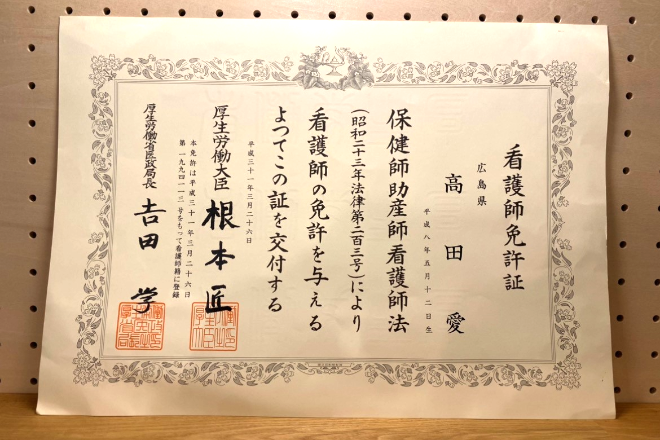 看護師免許証
広島県
高田愛
平成八年五月十二日生
保健師助産師看護師法
(昭和二十三年法律第二百三号)により
看護師の免許を与える
よつてこの証を交付する
平成三十一年三月二十六日
厚生労働大臣 根本匠
本免許は平成三十一年三月二十六日
第一九九四一一三号をもって看護師籍に登録
厚生労働省医政局長 吉田学